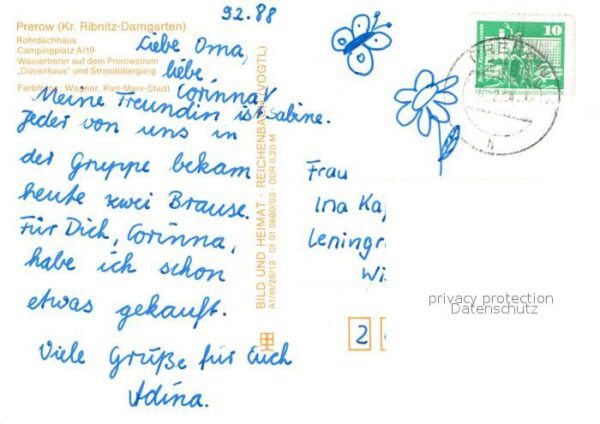 92.88
Prerow (Kr. Ribnitz-Damgarten)
Rohrdachhaus
Campingplatz A/19
Wassertreter auf dem Prerowstrom
„Günenhaus" und Strandübergang
Farbfotos: Wagner, Karl-Marx-Stadt
Liebe Oma,
liebe
Corinna!
Meine Freundin ist Sabine.
Jeder von uns in
der Gruppe bekam
heute zwei Brause.
Für Dich, Corinna,
habe ich schon
etwas gekauft.
Viele Grüße für Euch
Adina.
BILD UND HEIMAT · REICHENBACH (VOGTL)
A1/III/26/13 · 01 01 0680/03 · DDR 0,20 M
10
Frau
Ina Ka
Leningr
Wi
2
privacy protection
Datenschutz